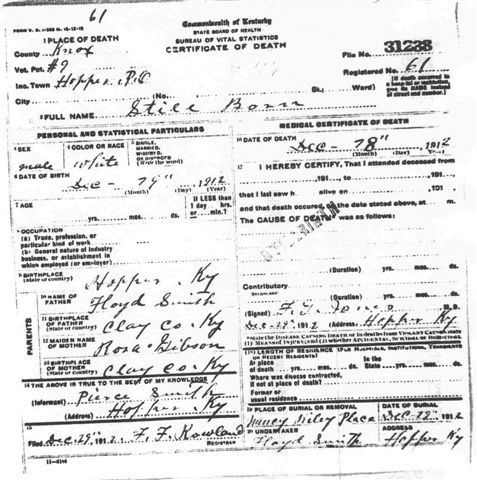 61
FORM V. S. 1-
Commonwealth of Kentucky
STATE BOARD OF HEALTH
BUREAU OF VITAL STATISTICS
CERTIFICATE OF DEATH
1 PLACE OF DEATH
County Knox
Vot. Pct #9
Inc. Town Hopper, P.O
City No. St.; Ward)
File No. 31238
Registered No. 61
(If death occurred in a hospital or institution, give its NAME instead of street and number.)
2 FULL NAME Still Born
PERSONAL AND STATISTICAL PARTICULARS
3 SEX male
4 COLOR OR RACE White
5 SINGLE, MARRIED, WIDOWED OR DIVORCED (Write the word)
6 DATE OF BIRTH
Dec- 1912
(Month) (Day) (Year)
7 AGE
yrs. mos. ds.
If LESS than 1 day, hrs. or min.?
8 OCCUPATION
(a) Trade, profession, or particular kind of work
(b) General nature of industry business, or establishment in which employed (or employer)
9 BIRTHPLACE (State or country) Hopper, Ky
PARENTS
10 NAME OF FATHER Floyd Smith
11 BIRTHPLACE OF FATHER (State or country) Clay Co. Ky
12 MAIDEN NAME OF MOTHER Rosa Gibson
13 BIRTHPLACE OF MOTHER (State or country) Clay Co. Ky
14 THE ABOVE IS TRUE TO THE BEST OF MY KNOWLEDGE
(Informant) Pierce Smith
(Address) Hopper Ky
15
Filed Dec-29" 1912 F. F.
REGISTRAR
MEDICAL CERTIFICATE OF DEATH
16 DATE OF DEATH
Dec- 1912
(Month) (Day) (Year)
17 I HEREBY CERTIFY, That I attended deceased from
191 , to 191
that I last saw h alive on 191
and that death occurred, on the date stated above, at m.
The CAUSE OF DEATH was as follows:
(Duration) yrs. mos. ds.
Contributory
(Duration) yrs. mos. ds.
(Signed) M.D.
Dec-29" 1912 (Address) Hopper Ky
18 LENGTH OF RESIDENCE (FOR HOSPITALS, INSTITUTIONS, TRANSIENTS OR RECENT RESIDENTS)
At place of death yrs. mos. ds. In the State yrs. mos. ds.
Where was disease contracted, if not at place of death?
Former or usual residence
19 PLACE OF BURIAL OR REMOVAL Place
DATE OF BURIAL Dec- 1912
20 UNDERTAKER Floyd Smith
Hopper Ky